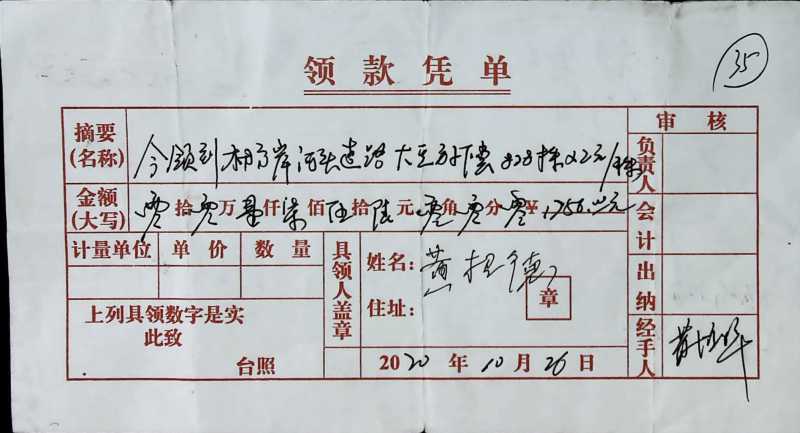 35
领款凭单
审核
摘要(名称) 今领到 岸河头道路大豆补偿878株×2元/株
负责人
金额(大写) 零拾零万壹仟柒佰伍拾陆元零角零分零¥1756.00元
会计
计量单位 单价 数量
具领人盖章
姓名:黄 德
章
住址:
出纳
上列具领数字是实
此致
台照
2020年10月26日
经手人